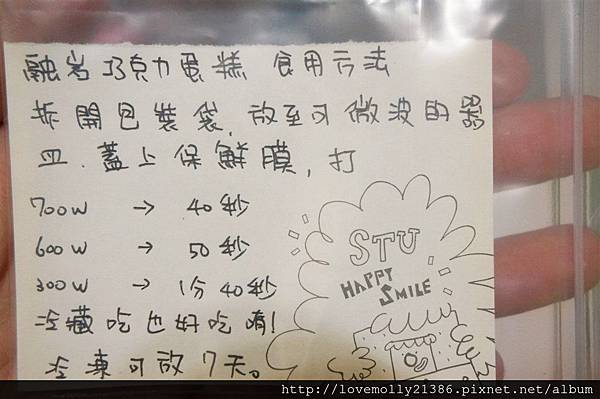 融岩巧克力蛋糕 食用方法
拆開包裝袋,放至可微波的器
皿.蓋上保鮮膜,打
700W → 40秒
600W → 50秒
300W → 1分40秒
冷藏吃也好吃唷!
冷凍可放7天。
STU
HAPPY
SMILE
http://lovemolly21386.pixnet.net/album